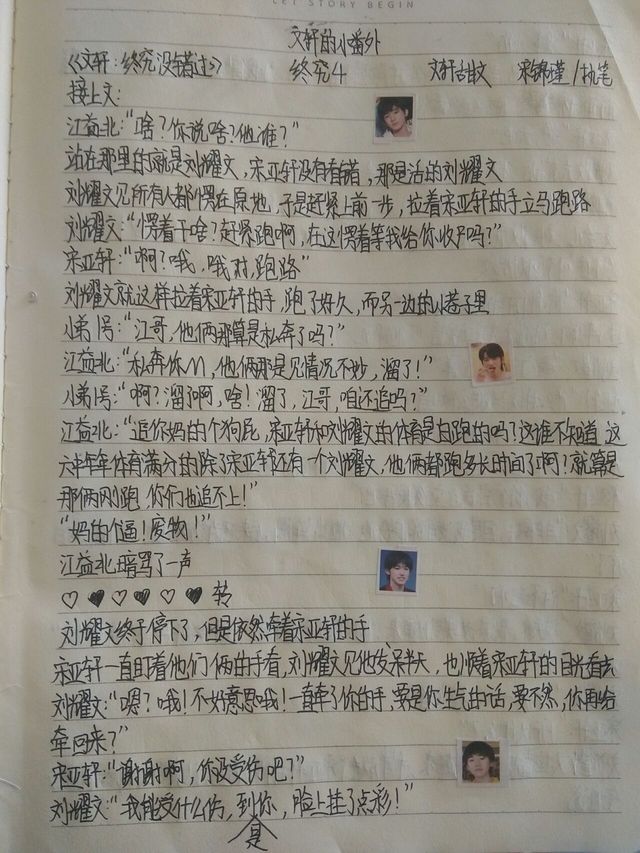 LET STORY BEGIN
文轩的小番外
《文轩:终究没错过》 终究4 文轩甜文 宋锦瑾/执笔
接上文:
江益北:“啥?你说啥?他谁?”
站在那里的就是刘耀文,宋亚轩没有看错,那是活的刘耀文
刘耀文见所有人都愣在原地,于是赶紧上前一步,拉着宋亚轩的手立马跑路
刘耀文:“愣着干啥?赶紧跑啊,在这愣着等我给你收尸吗?”
宋亚轩:“啊?哦,哦对,跑路”
刘耀文就这样拉着宋亚轩的手,跑了好久,而另一边的小巷子里
小弟1号:“江哥,他俩那算是私奔了吗?”
江益北:“私奔你M,他俩那是见情况不妙,溜了!”
小弟1号:“啊?溜了啊,啥!溜了,江哥,咱还追吗?”
江益北:“追你妈的个狗屁,宋亚轩和刘耀文的体育是白跑的吗?这谁不知道,这
六年年年体育满分的除了宋亚轩还有一个刘耀文,他俩都跑多长时间了啊?就算是
那俩刚跑,你们也追不上!”
“妈的个逼!废物!”
江益北暗骂了一声
♡♥♡♥♡♥ 转
刘耀文终于停下了,但是依然牵着宋亚轩的手
宋亚轩一直盯着他们俩的手看,刘耀文见他发呆半天,也顺着宋亚轩的目光看去
刘耀文:“嗯?哦!不好意思哦!一直牵了你的手,要是你生气的话,要不然,你再给
牵回来?”
宋亚轩:“谢谢啊,你没受伤吧?”
刘耀文:“我能受什么伤,到是你,脸上挂了点彩!”